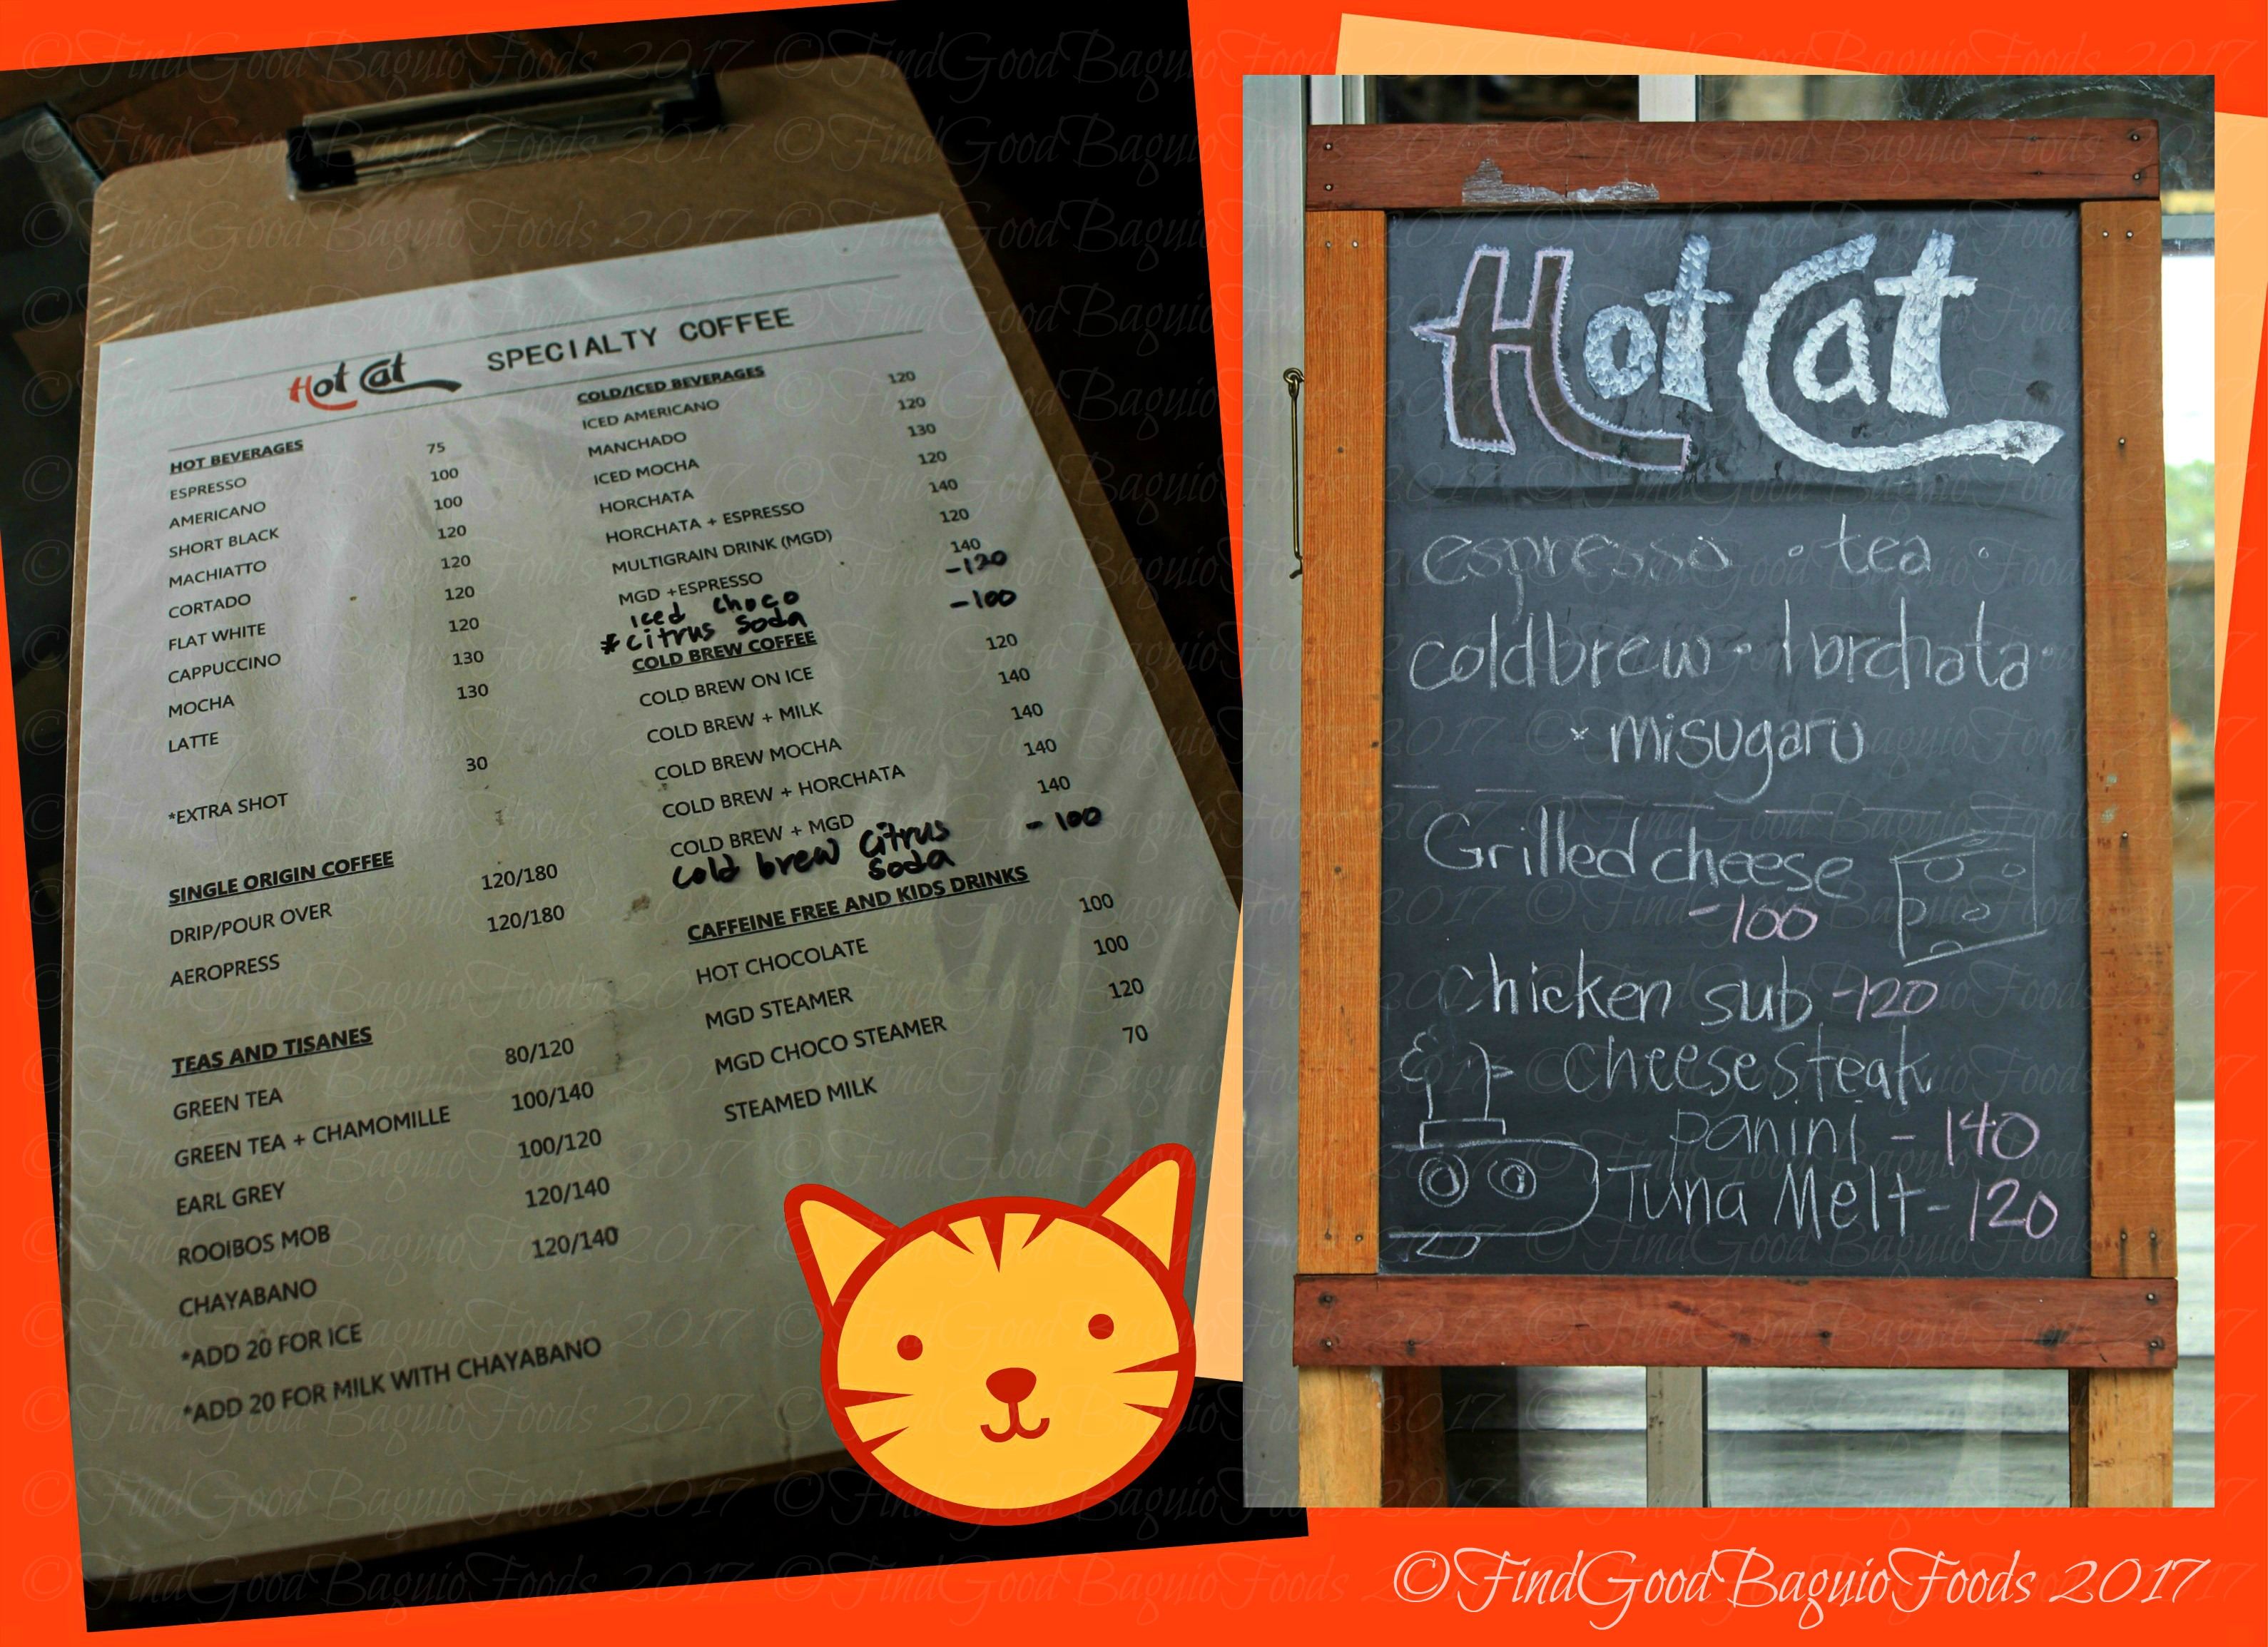 Hot Cat SPECIALTY COFFEE
HOT BEVERAGES
ESPRESSO 75
AMERICANO 100
SHORT BLACK 100
MACHIATTO 120
CORTADO 120
FLAT WHITE 120
CAPPUCCINO 120
MOCHA 130
LATTE 130
*EXTRA SHOT 30
SINGLE ORIGIN COFFEE
DRIP/POUR OVER 120/180
AEROPRESS 120/180
TEAS AND TISANES
GREEN TEA 80/120
GREEN TEA + CHAMOMILLE 100/140
EARL GREY 100/120
ROOIBOS MOB 120/140
CHAYABANO 120/140
*ADD 20 FOR ICE
*ADD 20 FOR MILK WITH CHAYABANO
COLD/ICED BEVERAGES
ICED AMERICANO 120
MANCHADO 120
ICED MOCHA 130
HORCHATA 120
HORCHATA + ESPRESSO 140
MULTIGRAIN DRINK (MGD) 120
MGD +ESPRESSO 140
iced choco -120
*citrus soda -100
COLD BREW COFFEE
COLD BREW ON ICE 120
COLD BREW + MILK 140
COLD BREW MOCHA 140
COLD BREW + HORCHATA 140
COLD BREW + MGD 140
cold brew citrus - 100
soda
CAFFEINE FREE AND KIDS DRINKS
HOT CHOCOLATE 100
MGD STEAMER 100
MGD CHOCO STEAMER 120
STEAMED MILK 70
Hot Cat
espresso • tea •
coldbrew • horchata •
× misugaru
Grilled cheese
-100
Chicken sub -120
cheesesteak
panini - 140
Tuna Melt - 120
©FindGoodBaguioFoods 2017